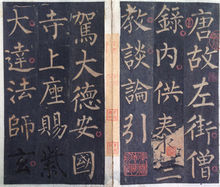 唐故左街僧
錄內供奉三
教談論引
駕大德安國
寺上座賜紫
大達法師玄